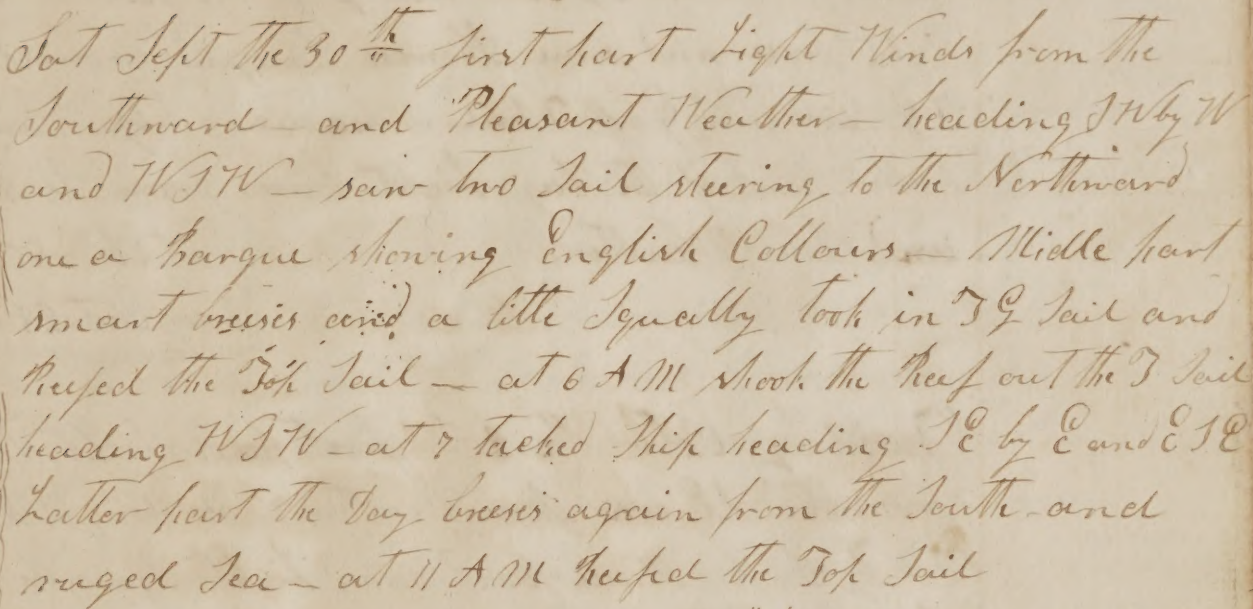 Sat Sept the 30th first part Light Winds from the
Southward – and Pleasant Weather – heading SW by W
and WSW – saw two Sail steering to the Northward
one a Barque showing English Collours – Midle part
smart breises and a little Squally took in T G Sail and
Reefed the Top Sail – at 6 AM shook the Reef out the T Sail
heading WSW – at 7 tacked Ship heading SE by E and ESE
Latter part the Day breeses again from the South and
ruged Sea – at 11 AM Reefed the Top Sail